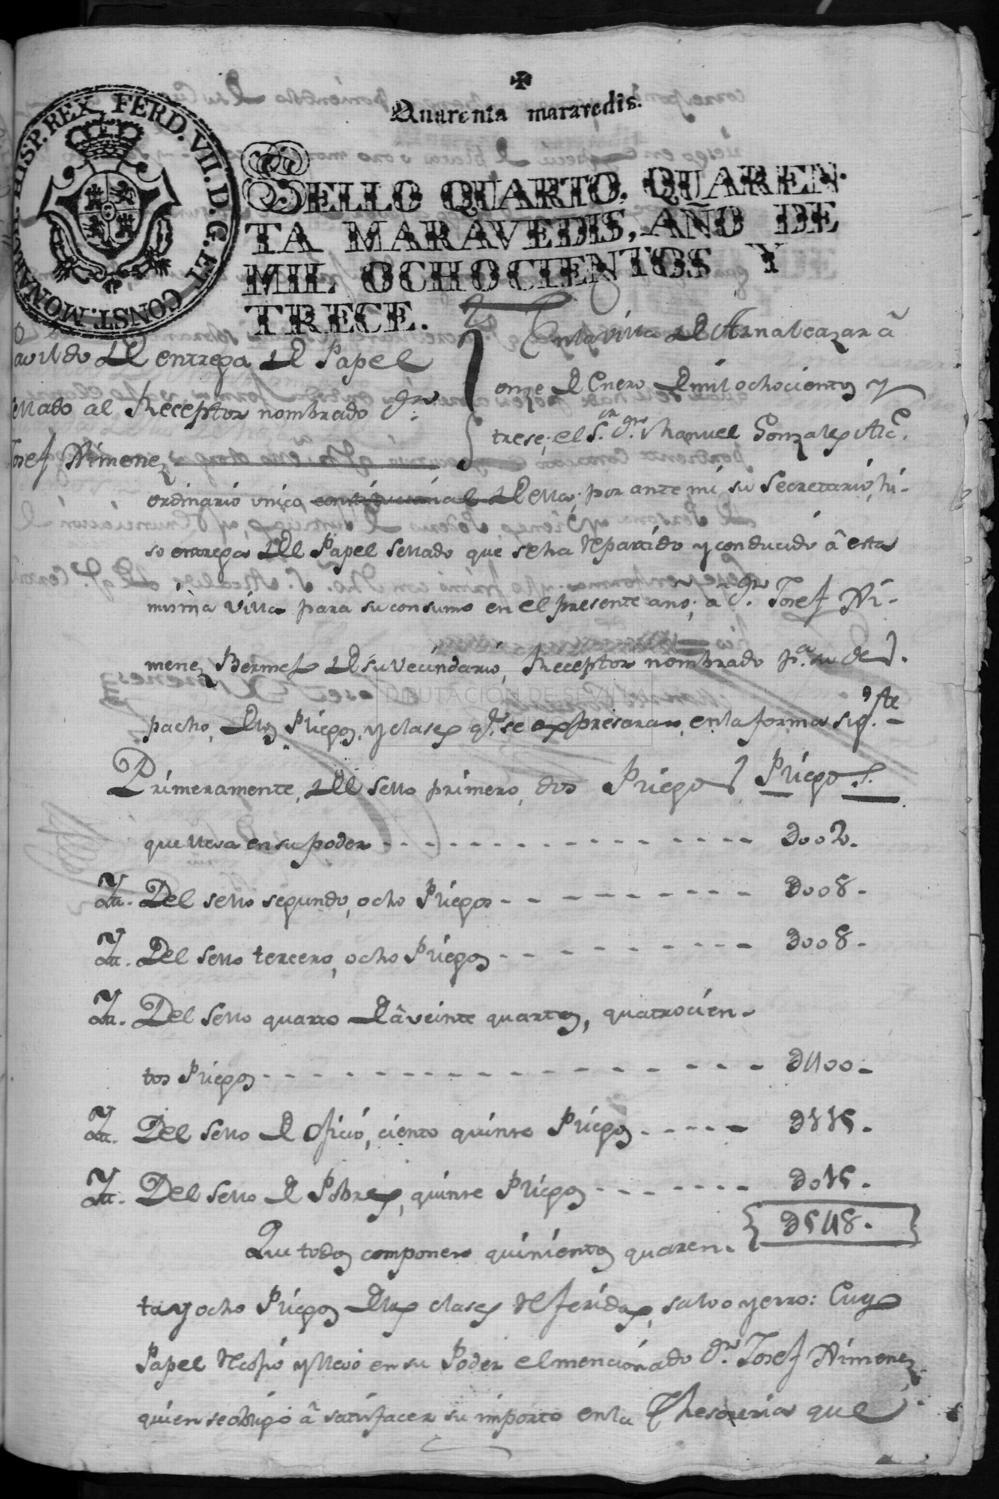 ✠
Quarenta maravedis.
SELLO QUARTO, QUAREN-
TA MARAVEDIS, AÑO DE
MIL OCHOCIENTOS Y
TRECE.
HISP. REX, FERD. VII. D. G. ET CONST. MONAR
DIPUTACIÓN DE SEVILLA
de entrega de Papel
sellado al Receptor nombrado Dn.
Josef Ximenez
En la villa de Aznalcazar â
onze de Enero de mil ochocientos y
trese, el Sr. Dn. Manuel Gonzales Alc.
ordinario unico de ella, por ante mi su Secretario, hi-
so entrega del Papel sellado que se ha repartido y conducido â esta
misma Villa para su consumo en el presente año, a Dn. Josef Xi-
menez Bermes de su vecindario, Receptor nombrado pa. su des-
pacho, de los Pliegos, y clases qe. se expresaran, en la forma sigte.
Primeramente, del sello primero, dos Pliegos Pliegos.
que lleva en su poder - - - - - - - - - - - - D002.
Yt. Del sello segundo, ocho Pliegos - - - - - - - D008.
Yt. Del sello tercero, ocho Pliegos - - - - - - - D008.
Yt. Del sello quarto de â veinte quartos, quatrocien-
tos Pliegos - - - - - - - - - - - - - - - - D400.
Yt. Del sello de Oficio, ciento quinse Pliegos - - - - - D115.
Yt. Del sello de Pobres, quinse Pliegos - - - - - - D015.
D548.
Que todos componen quinientos quaren-
ta y ocho Pliegos de las clases referidas, salvo yerro: Cuyo
Papel recivió y llevó en su Poder el mencionado Dn. Josef Ximenez
quien se obligó â satisfacer su importe en la Thesoreria que